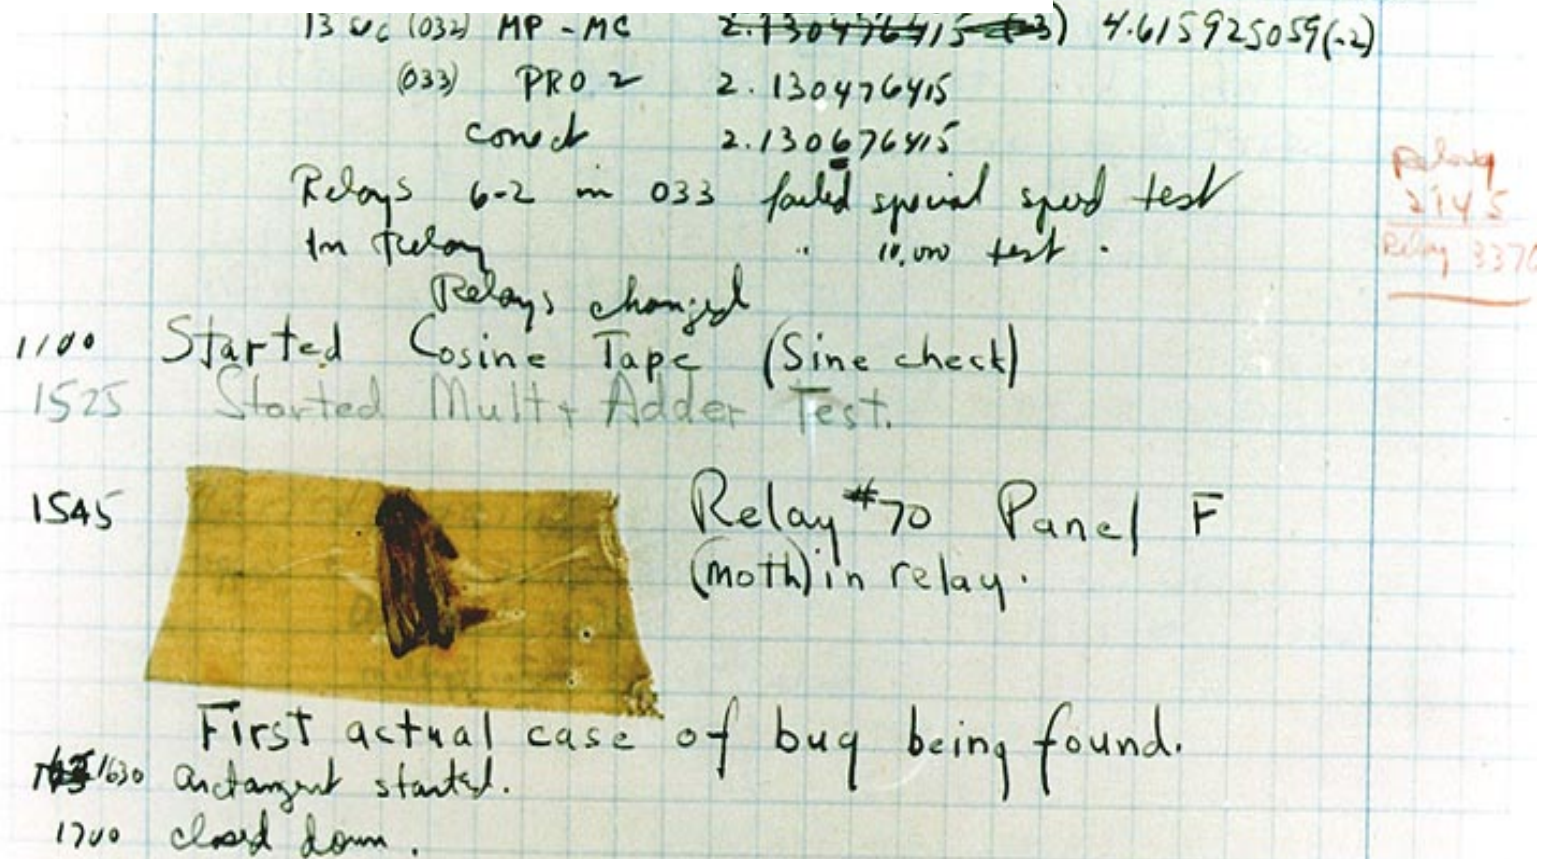 13 uc (032) MP - MC 2.130476415 (-3) 4.615925059(-2)
(033) PRO 2 2.130476415
conect 2.130676415
Relays 6-2 in 033 failed special speed test
In Relay " 10,000 test .
Relays changed
Relay
2145
Relay 3370
1100 Started Cosine Tape (Sine check)
1525 Started Mult+ Adder Test.
1545 Relay #70 Panel F
(moth) in relay.
First actual case of bug being found.
1630 arctangent started.
1700 closed down.